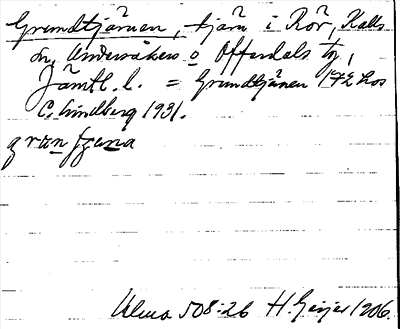 Grundtjärnen, tjärn i Rör, Kalls
sn, Undersåkers o Offerdals tg,
Jämtl. l. = Grundtjänen 172 hos
C. Lindberg 1931.
grœn fzœna
Ulma 508:26 H. Geijer 1206.